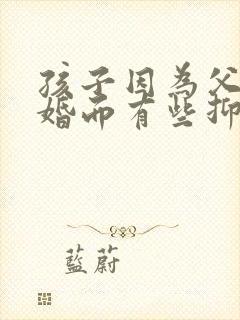 孩子因為父
婚而有些抑
藍蔚